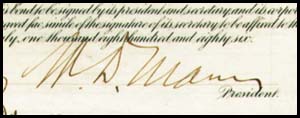 bond to be signed by its president and secretary and its corpo
and fac-simile of the signature of its secretary to be affixed to the
ly, one thousand eight hundred and eighty six.
W. D. Mann
President.